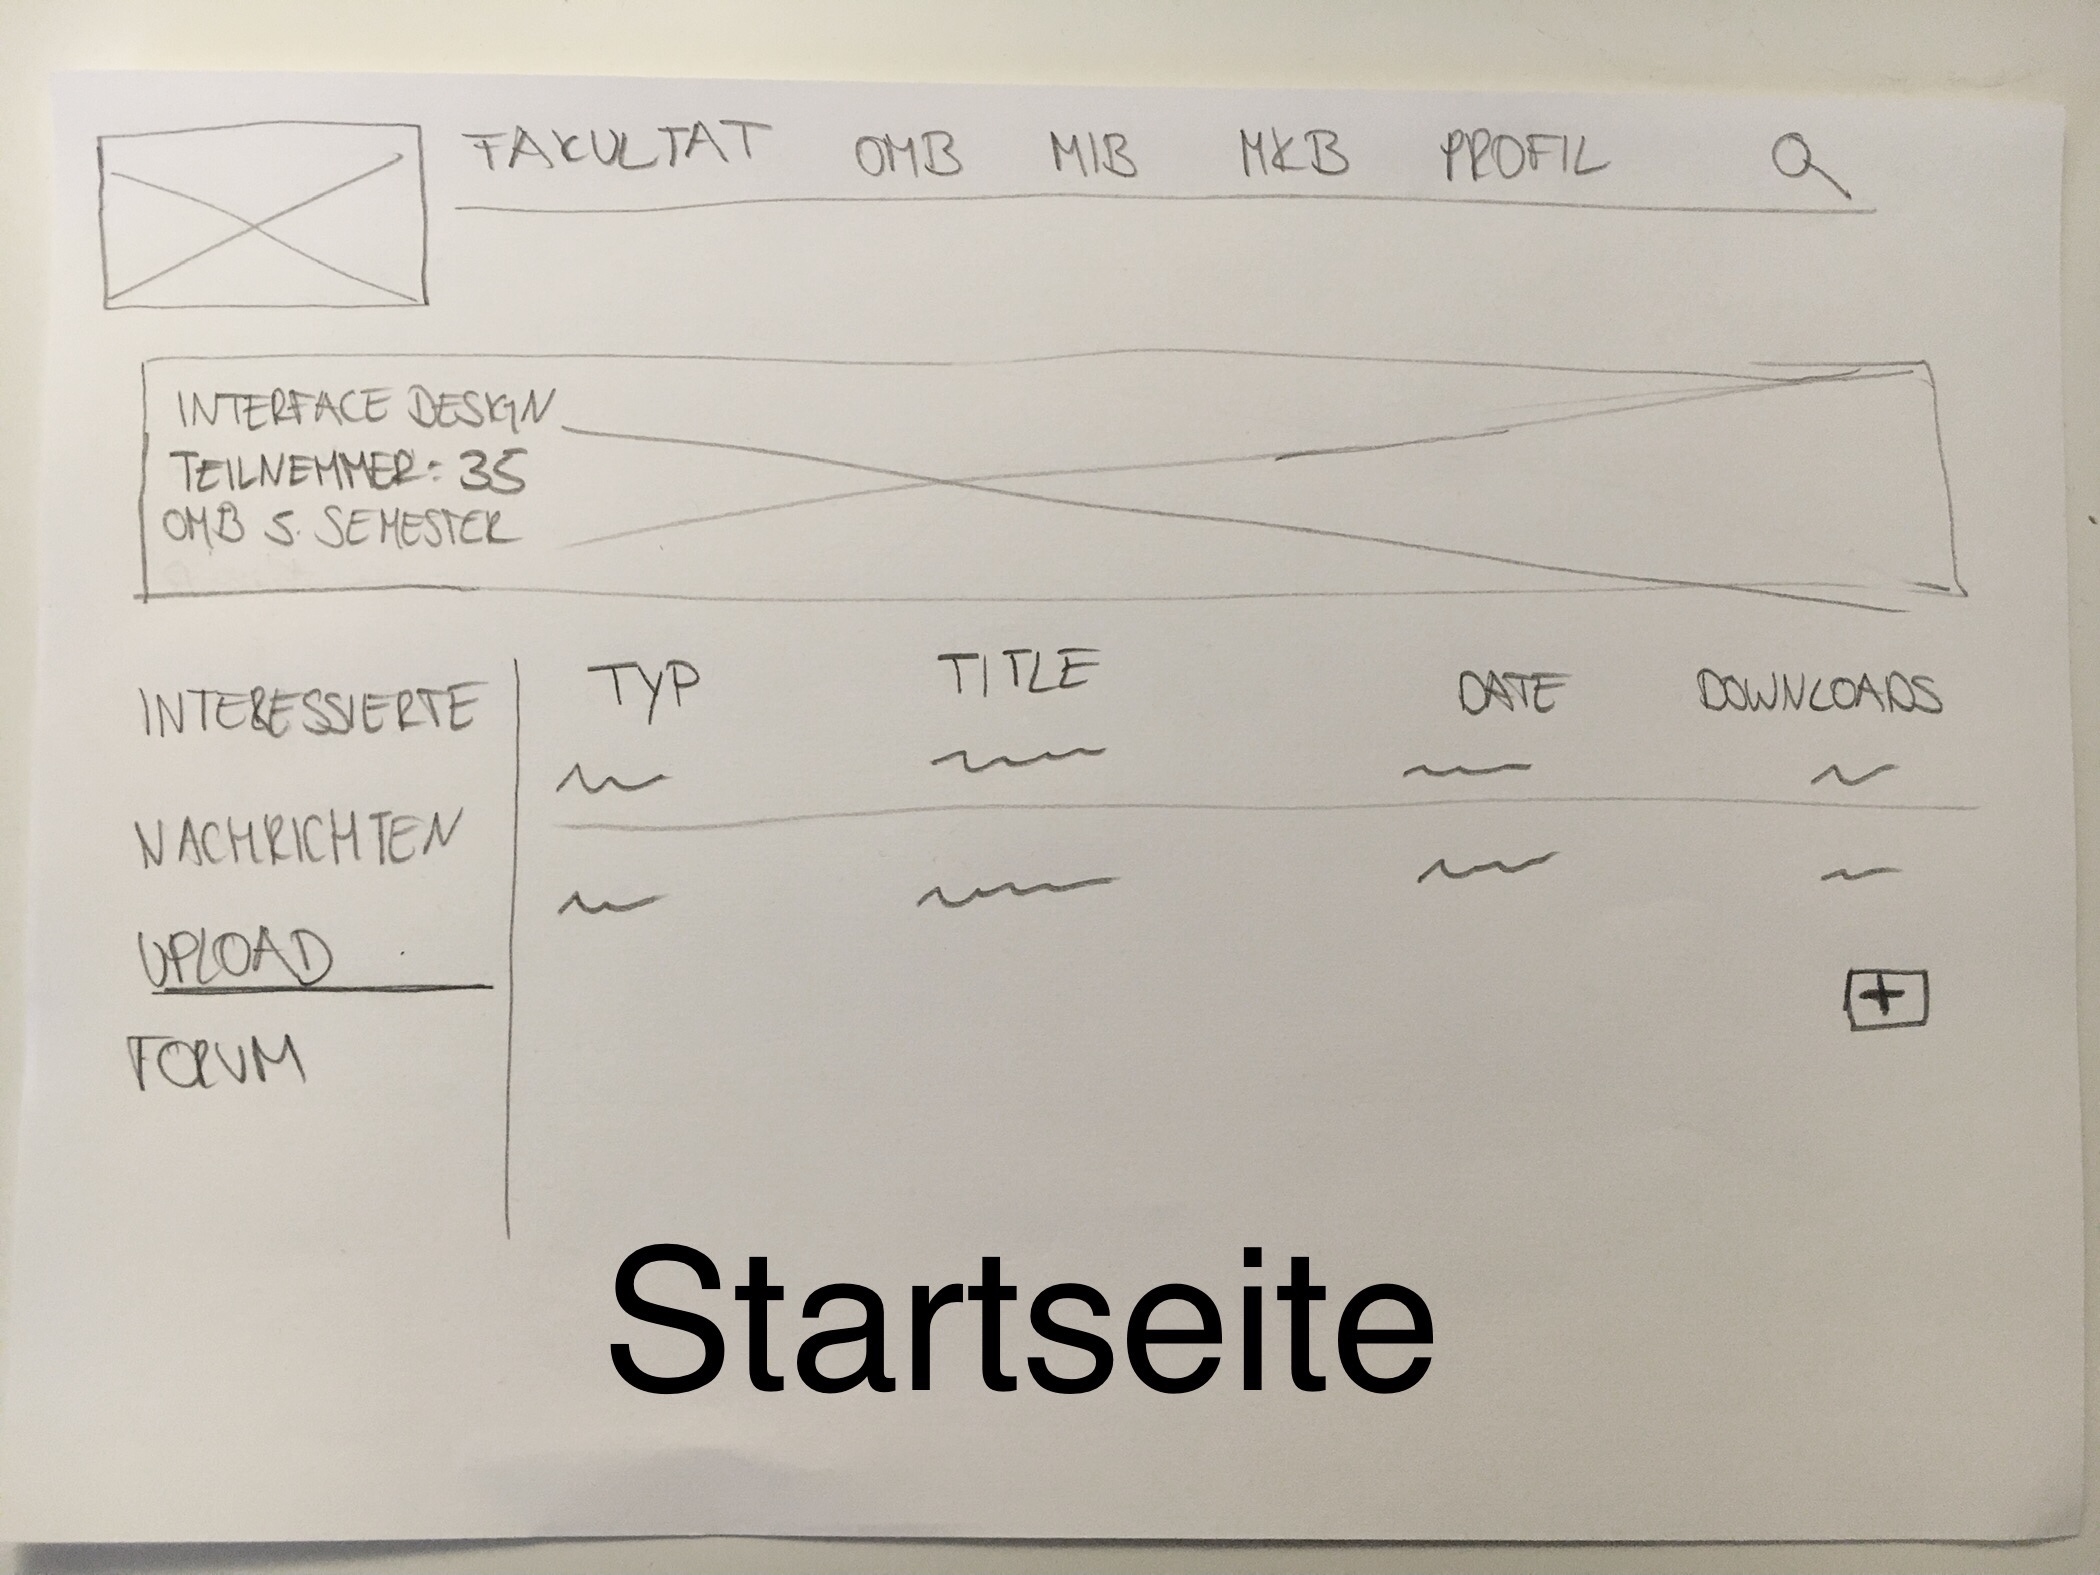 FAKULTAT OMB MIB MKB PROFIL
INTERFACE DESIGN
TEILNEHMER: 35
OMB 5. SEMESTER
INTERESSIERTE
NACHRICHTEN
UPLOAD
FORUM
TYP TITLE DATE DOWNLOADS
+
Startseite